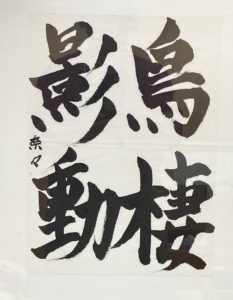 鳥棲
影動
奈々